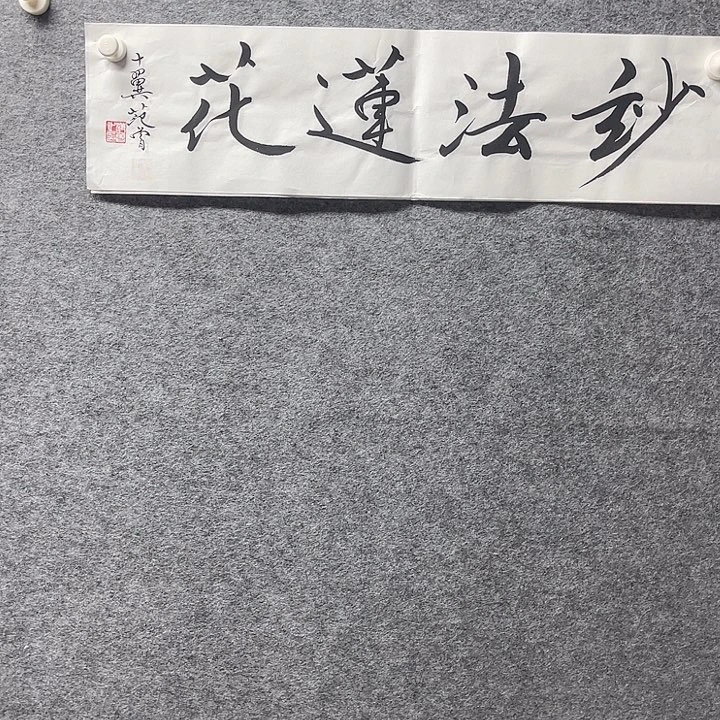 玅法蓮花
十翼范曾